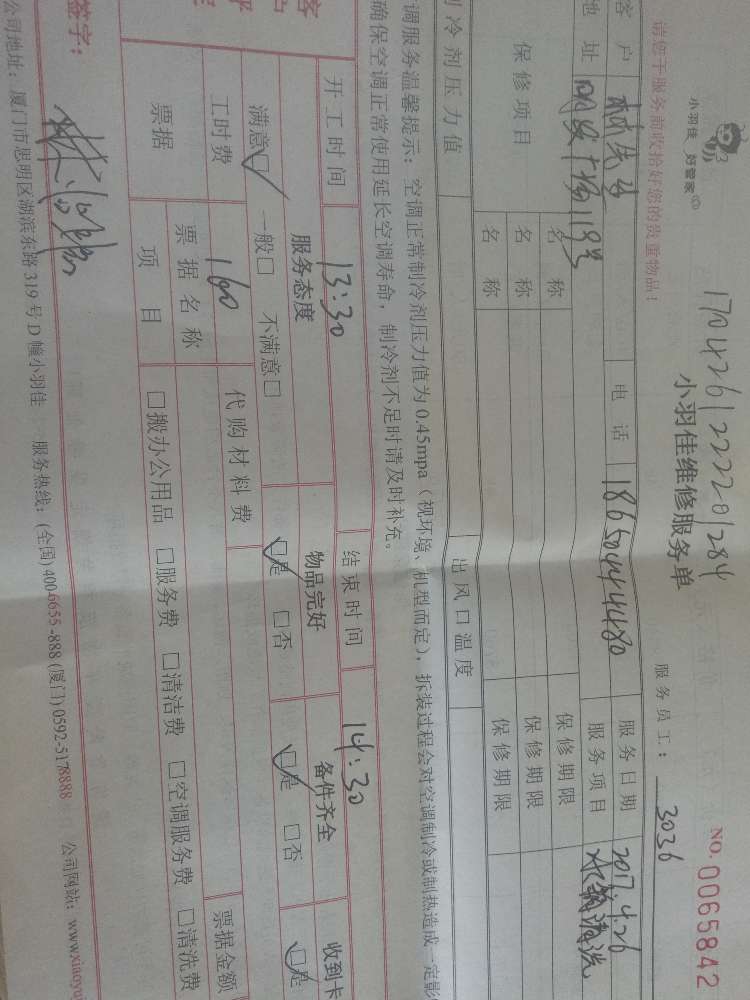 小羽佳 好管家
1704261222201284
小羽佳维修服务单
NO. 0065842
请您于服务前收拾好您的贵重物品!
服务员工: 3036
客户 电话 18650444480 服务日期 2017.4.26
地址 明发广场118号 服务项目 水箱清洗
保修项目 名称 保修期限
名称 保修期限
名称 保修期限
制冷剂压力值 出风口温度
调服务温馨提示:空调正常制冷剂压力值为 0.45mpa(视环境、机型而定),拆装过程会对空调制冷或制热造成一定影
确保空调正常使用延长空调寿命,制冷剂不足时请及时补充。
开工时间 13:30 结束时间 14:30
服务态度 物品完好 备件齐全 收到卡
满意☑ 一般□ 不满意□ ☑是 □否 ☑是 □否 ☑是
工时费 160 代购材料费
票据 票据名称 票据金额
项目 □搬办公用品 □服务费 □清洁费 □空调服务费 □清洗费
签字:
公司地址:厦门市思明区湖滨东路 319 号 D 幢小羽佳 服务热线:(全国) 400-6655-888 (厦门) 0592-5178888 公司网站:www.xiaoyu